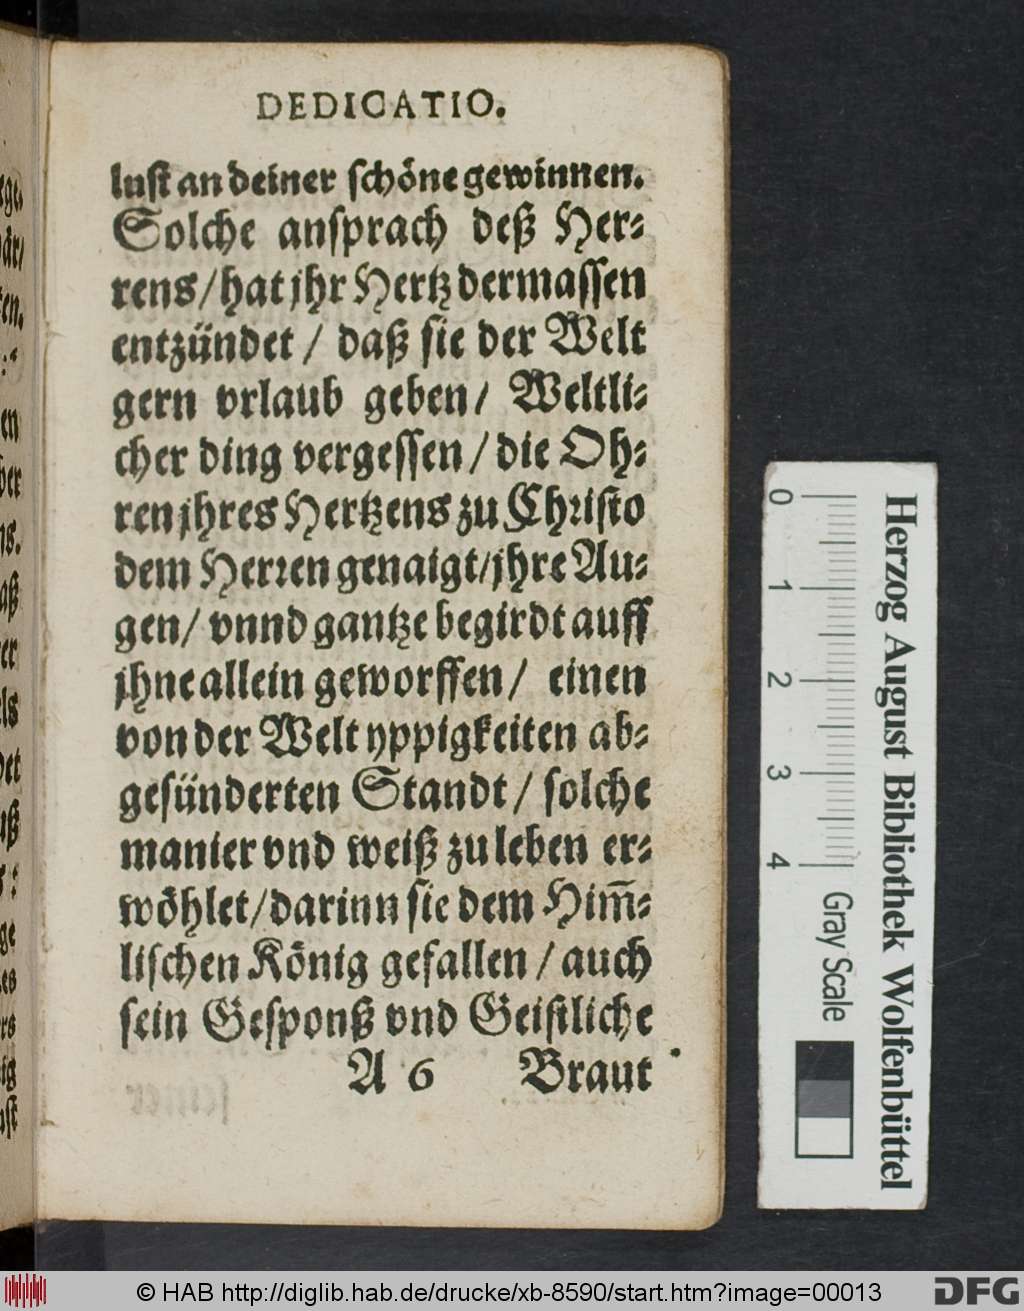 DEDICATIO.
lust an deiner schöne gewinnen.
Solche ansprach deß Her-
rens/hat jhr Hertz dermassen
entzündet / daß sie der Welt
gern vrlaub geben/ Weltli-
cher ding vergessen / die Oh-
ren jhres Hertzens zu Christo
dem Herren genaigt/jhre Au-
gen/ vnnd gantze begirdt auff
jhne allein geworffen/ einen
von der Welt yppigkeiten ab-
gesünderten Standt / solche
manier vnd weiß zu leben er-
wöhlet/darinn sie dem Him̅-
lischen König gefallen / auch
sein Gesponß vnd Geistliche
A 6 Braut
0 1 2 3 4
Gray Scale
Herzog August Bibliothek Wolfenbüttel
© HAB http://diglib.hab.de/drucke/xb-8590/start.htm?image=00013
DFG